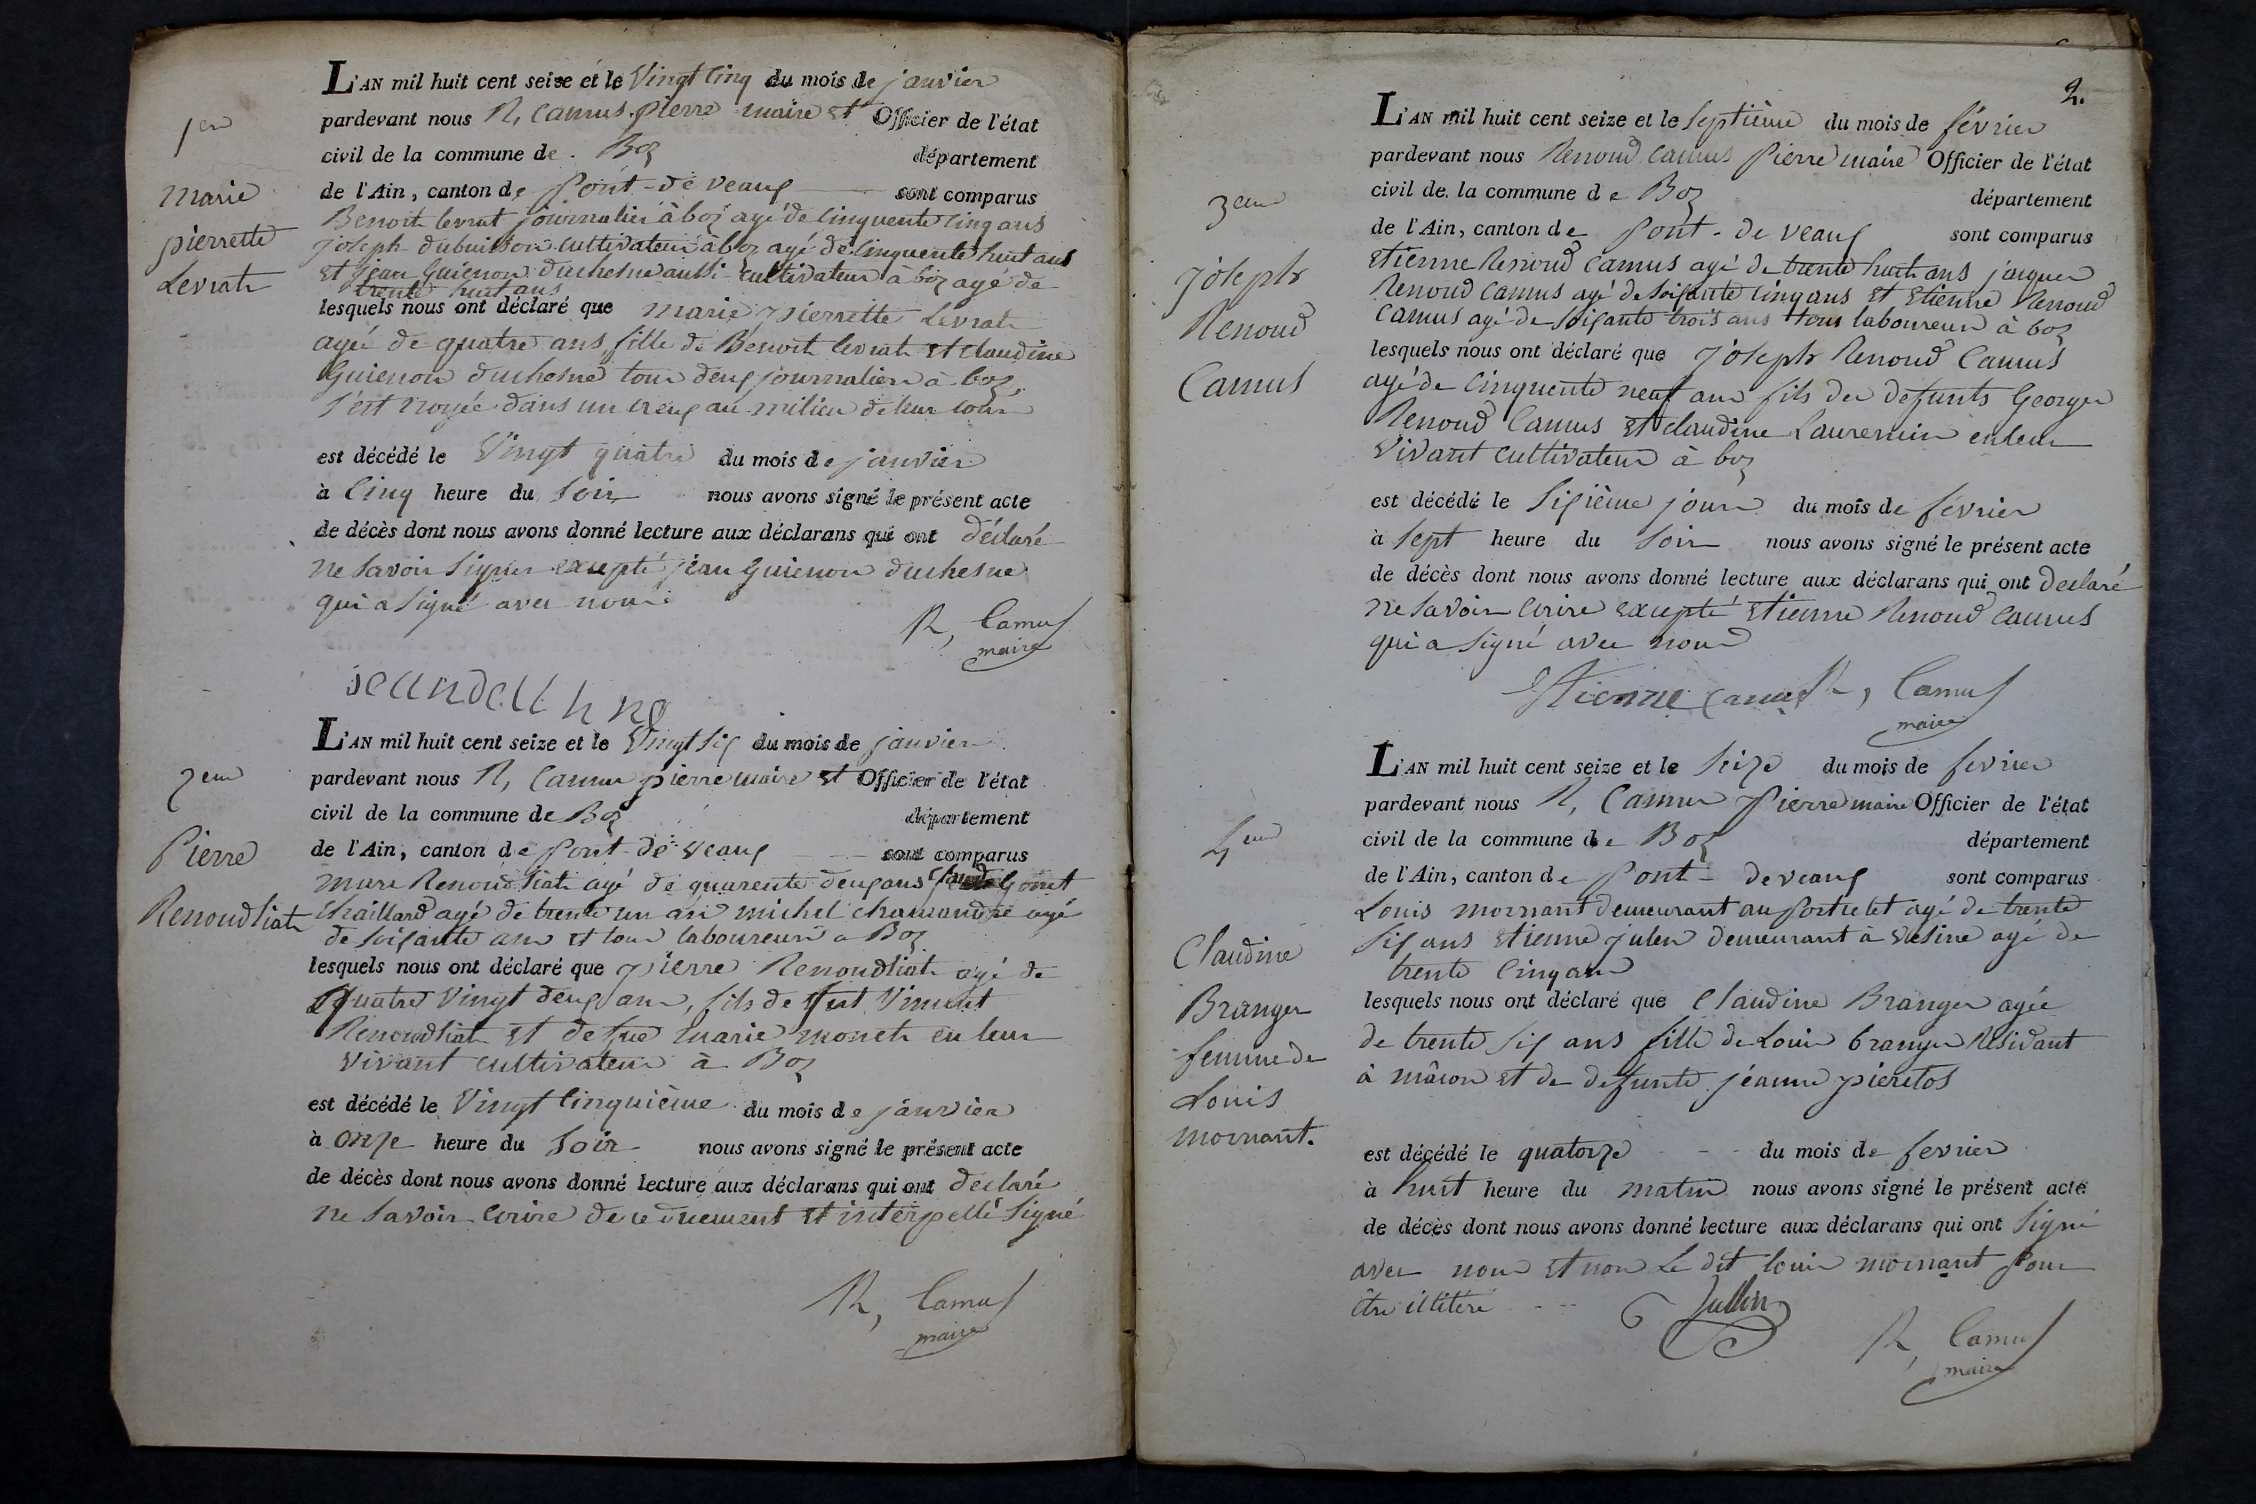 1er
marie
pierrette
Levrat
L'AN mil huit cent seise et le Vingt cinq du mois de janvier
pardevant nous R, Camus pierre maire et Officier de l'état
civil de la commune de Boz département
de l'Ain, canton de Pont-de veaux sont comparus
Benoit levrat journalier à boz agé de cinquente cinq ans
joseph dubuisson cultivateur à boz agé de cinquente huit ans
et jean Guienon duchesne aussi cultivateur à boz agé de
trente huit ans
lesquels nous ont déclaré que marie pierrette Levrat
agée de quatre ans fille de Benoit levrat et claudine
Guienon duchesne tous deux journaliers à boz,
s'est noyée dans un creux au milieu de leur cour
est décédé le Vingt quatre du mois de janvier
à Cinq heure du Soir nous avons signé le présent acte
de décès dont nous avons donné lecture aux déclarans qui ont déclaré
ne savoir signer excepté jean Guienon duchesne
qui a signé avec nous
R, Camus
maire
2eme
Pierre
Renoudliat
L'AN mil huit cent seize et le Vingt six du mois de janvier
pardevant nous R, Camus pierre maire et Officier de l'état
civil de la commune de Boz département
de l'Ain, canton de Pont-de veaux sont comparus
marc Renoudliat agé de quarente deux ans Claude Gonet
Chaillard agé de trente un an michel chamandre agé
de soixante ans et tous laboureurs a Boz
lesquels nous ont déclaré que pierre Renoudliat agé de
Quatre Vingt deux ans, fils de fut Vincent
Renoudliat et de fue marie monet en leur
vivant cultivateur à Boz
est décédé le Vingt Cinquième du mois de janvier
à onze heure du Soir nous avons signé le présent acte
de décès dont nous avons donné lecture aux déclarans qui ont déclaré
ne savoir écrire de ce duement et interpellé signé
R, Camus
maire
2.
3eme
joseph
Renoud
Camus
L'AN mil huit cent seize et le Septième du mois de février
pardevant nous Renoud Camus Pierre maire Officier de l'état
civil de la commune de Boz département
de l'Ain, canton de Pont-de veaux sont comparus
Etienne Renoud Camus agé de trente huit ans jacques
Renoud Camus agé de soixante cinq ans et Etienne Renoud
Camus agé de soixante trois ans tous laboureurs à boz
lesquels nous ont déclaré que joseph Renoud Camus
agé de Cinquente neuf ans fils des defunts Georges
Renoud Camus et claudine Laurencin en leur
Vivant cultivateur à boz
est décédé le Sixième jour du mois de février
à sept heure du Soir nous avons signé le présent acte
de décès dont nous avons donné lecture aux déclarans qui ont declaré
ne savoir écrire excepté Etienne Renoud Camus
qui a signé avec nous
Etienne Camus R, Camus
maire
4eme
Claudine
Branger
femme de
Louis
mornant.
L'AN mil huit cent seize et le Seize du mois de fevrier
pardevant nous R, Camus Pierre maire Officier de l'état
civil de la commune de Boz département
de l'Ain, canton de Pont-de veaux sont comparus
Louis mornant demeurant au portielet agé de trente
six ans etienne julen demeurant à vésine agé de
trente cinq ans
lesquels nous ont déclaré que Claudine Branger agée
de trente six ans fille de Louis branger Residant
à mâcon et de defunte jéanne pieretos
est décédé le quatorze du mois de fevrier
à huit heure du matin nous avons signé le présent acte
de décès dont nous avons donné lecture aux déclarans qui ont signé
avec nous et non Le dit louis mornant pour
être illitéré
Jullin
R, Camus
maire